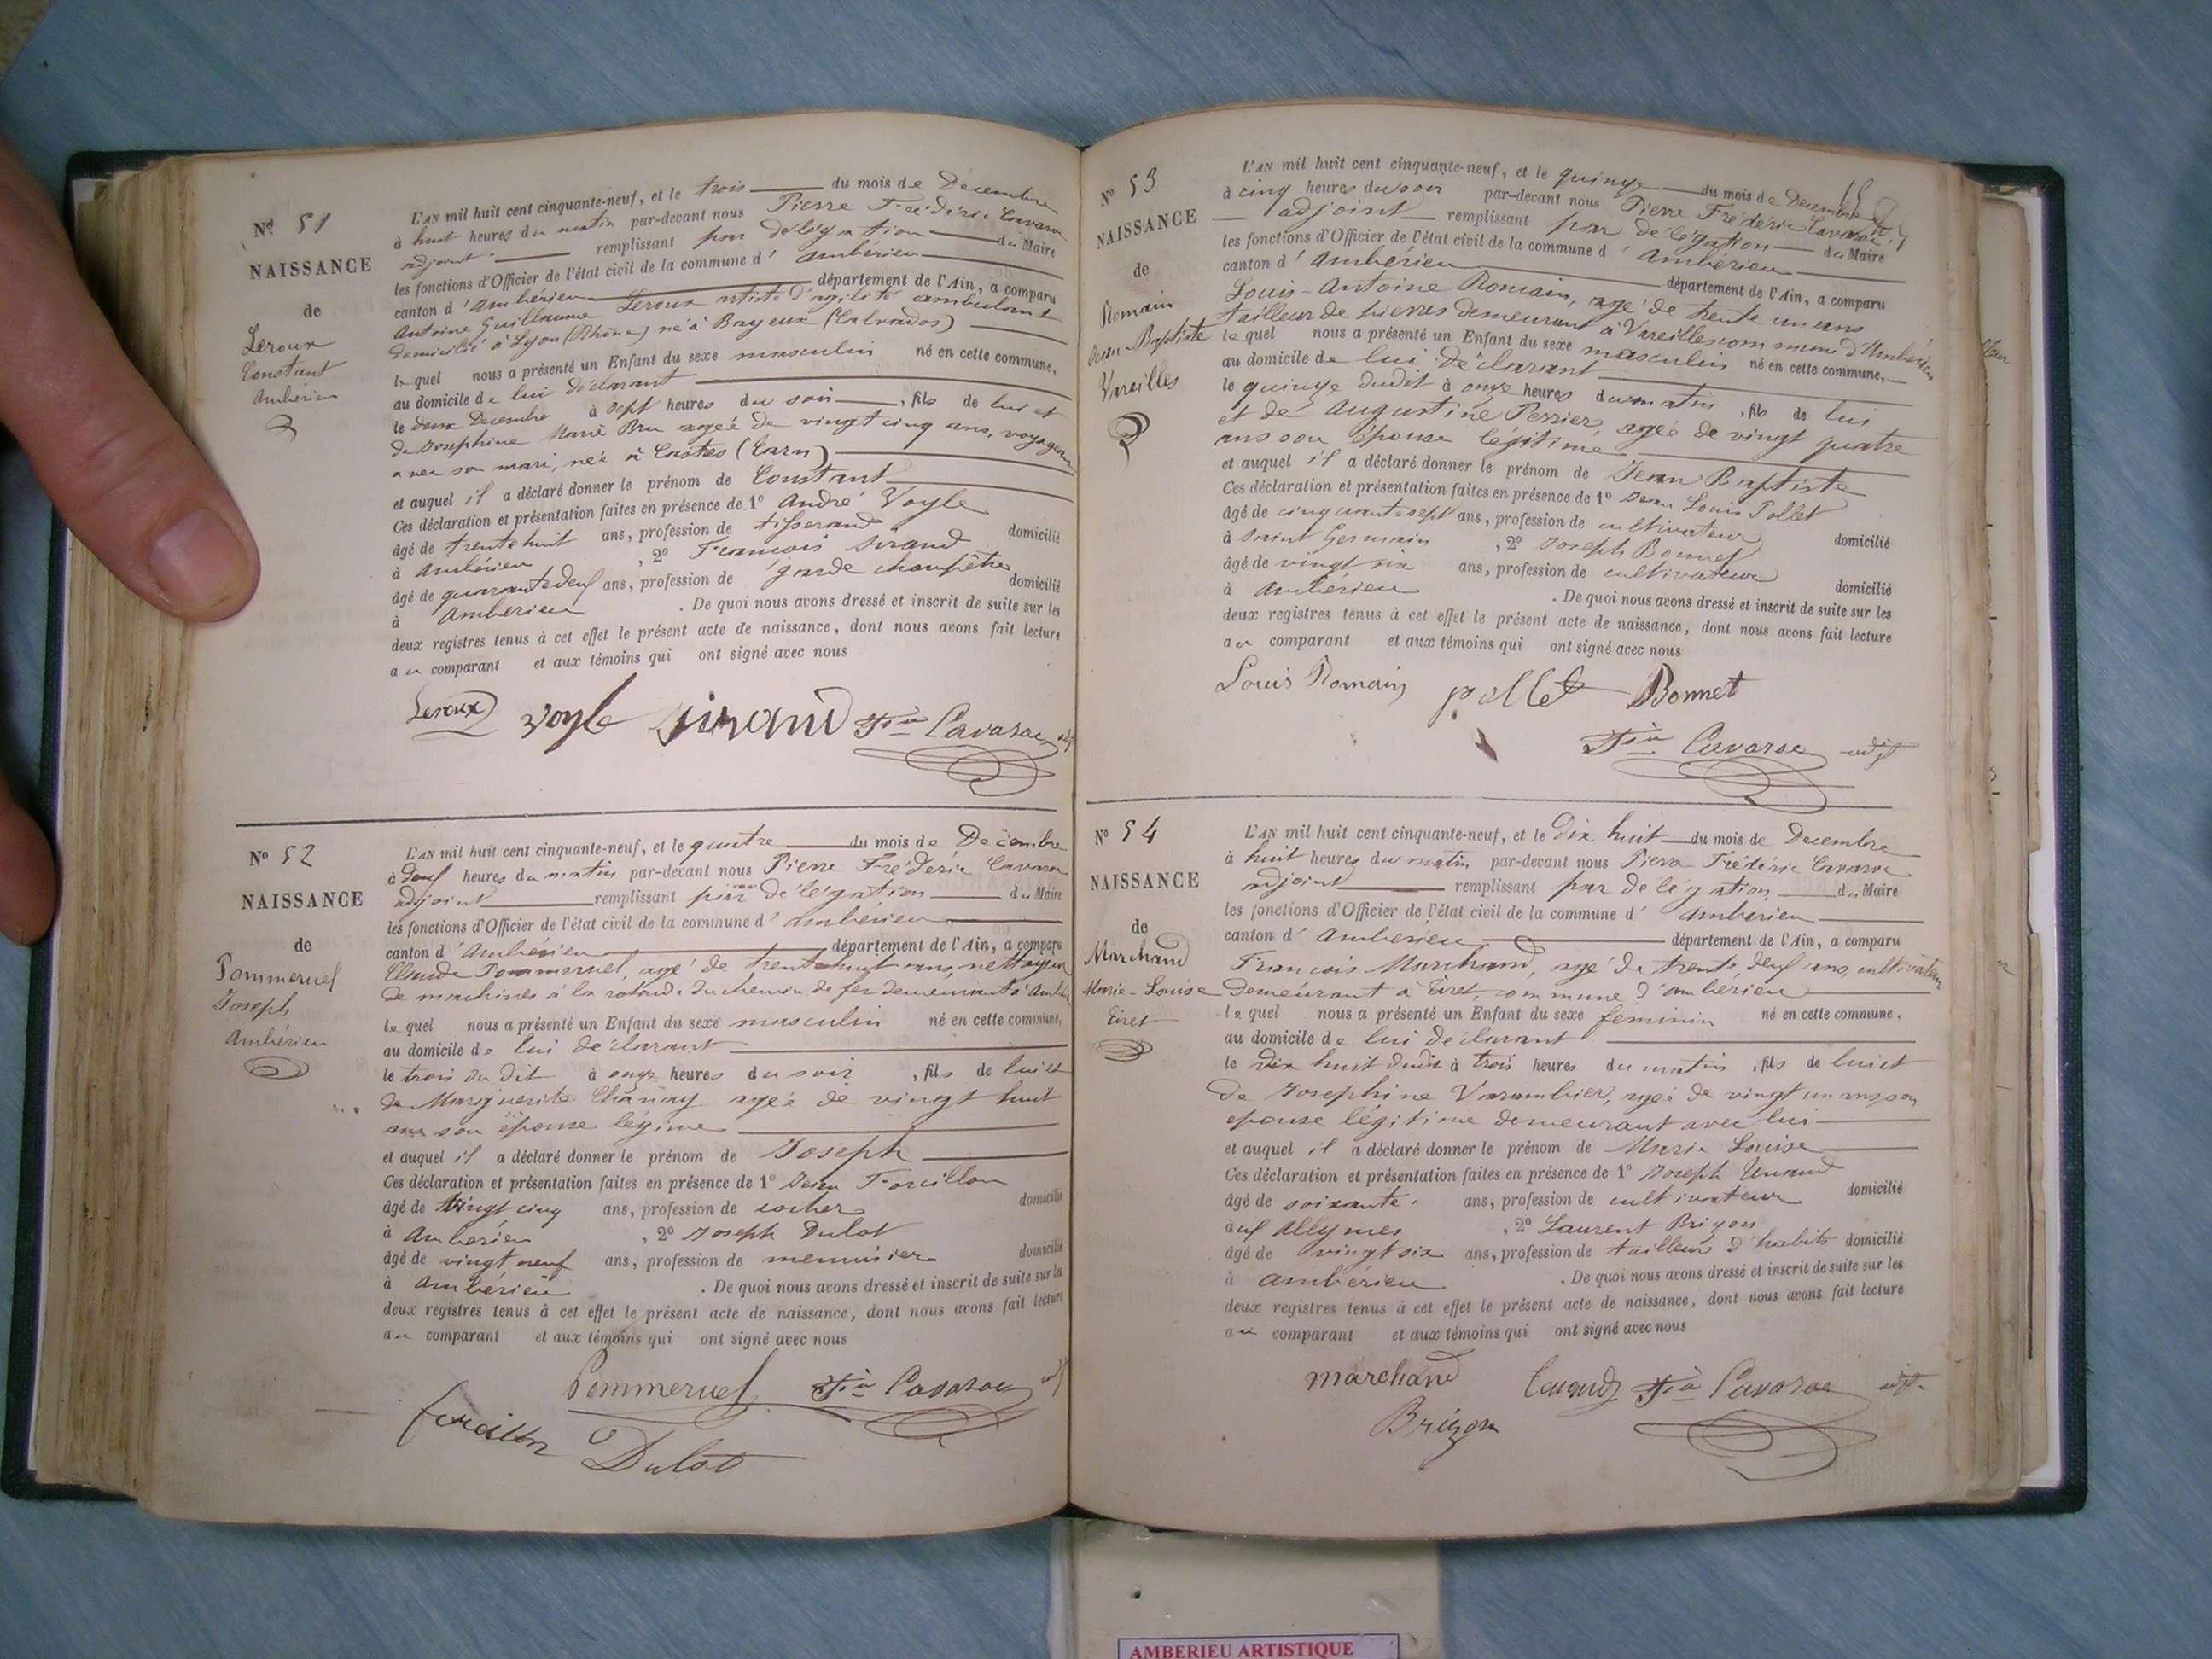 Nº 51
NAISSANCE
de
Leroux
Constant
Ambérieu
L'AN mil huit cent cinquante-neuf, et le trois du mois de Decembre
à huit heures du matin par-devant nous Pierre Frédéric Cavaroc
adjoint remplissant par délégation du Maire
les fonctions d'Officier de l'état civil de la commune d' Ambérieu
canton d' Ambérieu département de l'Ain, a comparu
Antoine Guillaume Leroux artiste d'agilité ambulant
domicilié à Lyon (Rhône) né à Bayeux (Calvados)
lequel nous a présenté un Enfant du sexe masculin né en cette commune,
au domicile de lui déclarant
le deux Decembre à sept heures du soir, fils de lui et
de Josephine Marie Bru agée de vingt cinq ans, voyageant
avec son mari, née à Castres (Tarn)
et auquel il a déclaré donner le prénom de Constant
Ces déclaration et présentation faites en présence de 1º André Voyle
âgé de trente huit ans, profession de tisserand domicilié
à Ambérieu, 2º François Sirand
âgé de quarante deuf ans, profession de garde champêtre domicilié
à Ambérieu. De quoi nous avons dressé et inscrit de suite sur les
deux registres tenus à cet effet le présent acte de naissance, dont nous avons fait lecture
au comparant et aux témoins qui ont signé avec nous
Leroux Voyle Sirand Fic Cavaroc adj
Nº 52
NAISSANCE
de
Pommeruel
Joseph
Ambérieu
L'AN mil huit cent cinquante-neuf, et le quatre du mois de Decembre
à deuf heures du matin par-devant nous Pierre Frédéric Cavaroc
adjoint remplissant par délégation du Maire
les fonctions d'Officier de l'état civil de la commune d' Ambérieu
canton d' Ambérieu département de l'Ain, a comparu
Claude Pommeruel, agé de trente huit ans, nettoyeur
de machines à la rotonde du chemin de fer demeurant à Ambérieu
lequel nous a présenté un Enfant du sexe masculin né en cette commune,
au domicile de lui déclarant
le trois du dit à onze heures du soir, fils de lui et
de Marguerite Chanay agée de vingt huit
ans son épouse légime
et auquel il a déclaré donner le prénom de Joseph
Ces déclaration et présentation faites en présence de 1º Jean Foreillon
âgé de vingt cinq ans, profession de cocher domicilié
à Ambérieu, 2º Joseph Dulot
âgé de vingt neuf ans, profession de menuisier domicilié
à Ambérieu. De quoi nous avons dressé et inscrit de suite sur les
deux registres tenus à cet effet le présent acte de naissance, dont nous avons fait lecture
au comparant et aux témoins qui ont signé avec nous
Pommeruel Fic Cavaroc adj
foreillon Dulot
Nº 53
NAISSANCE
de
Romain
Jean-Baptiste
Vareilles
L'AN mil huit cent cinquante-neuf, et le quinze du mois de Decembre
à cinq heures du soir par-devant nous Pierre Frédéric Cavaroc
adjoint remplissant par délégation du Maire
les fonctions d'Officier de l'état civil de la commune d' Ambérieu
canton d' Ambérieu département de l'Ain, a comparu
Louis-Antoine Romain, agé de trente un ans
tailleur de pierres demeurant à Vareilles commune d'Ambérieu
lequel nous a présenté un Enfant du sexe masculin né en cette commune,
au domicile de lui déclarant
le quinze dudit à onze heures du matin, fils de lui
et de Augustine Perrier, agée de vingt quatre
ans son épouse légitime
et auquel il a déclaré donner le prénom de Jean Baptiste
Ces déclaration et présentation faites en présence de 1º Jean Louis Pollet
âgé de cinquante sept ans, profession de cultivateur domicilié
à Saint Germain, 2º Joseph Bonnet
âgé de vingt six ans, profession de cultivateur domicilié
à Ambérieu. De quoi nous avons dressé et inscrit de suite sur les
deux registres tenus à cet effet le présent acte de naissance, dont nous avons fait lecture
au comparant et aux témoins qui ont signé avec nous
Louis Romain pollet Bonnet
Fic Cavaroc adjt
Nº 54
NAISSANCE
de
Marchand
Marie-Louise
Tiret
L'AN mil huit cent cinquante-neuf, et le dix huit du mois de Decembre
à huit heures du matin par-devant nous Pierre Frédéric Cavaroc
adjoint remplissant par délégation du Maire
les fonctions d'Officier de l'état civil de la commune d' Ambérieu
canton d' Ambérieu département de l'Ain, a comparu
François Marchand, agé de trente deuf ans, cultivateur
demeurant à Tiret, commune d'ambérieu
lequel nous a présenté un Enfant du sexe feminin né en cette commune,
au domicile de lui déclarant
le dix huit dudit à trois heures du matin, fils de lui et
de Josephine Varambier, agée de vingt un ans son
epouse légitime demeurant avec lui
et auquel il a déclaré donner le prénom de Marie Louise
Ces déclaration et présentation faites en présence de 1º Joseph
âgé de soixante ans, profession de cultivateur domicilié
à uf Allymes, 2º Laurent Brizon
âgé de vingt six ans, profession de tailleur d'habits domicilié
à Ambérieu. De quoi nous avons dressé et inscrit de suite sur les
deux registres tenus à cet effet le présent acte de naissance, dont nous avons fait lecture
au comparant et aux témoins qui ont signé avec nous
marchand Fic Cavaroc adjt
Brizon
AMBERIEU ARTISTIQUE